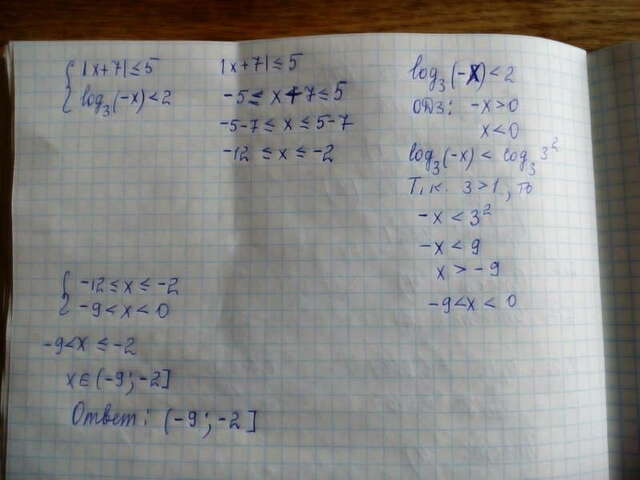 { |x+7| ≤ 5
log₃(-x) < 2
|x+7| ≤ 5
-5 ≤ x+7 ≤ 5
-5-7 ≤ x ≤ 5-7
-12 ≤ x ≤ -2
log₃(-x) < 2
ОДЗ: -x > 0
x < 0
log₃(-x) < log₃ 3²
Т.к. 3 > 1, то
-x < 3²
-x < 9
x > -9
-9 < x < 0
{ -12 ≤ x ≤ -2
-9 < x < 0
-9 < x ≤ -2
x ∈ (-9; -2]
Ответ: (-9; -2]